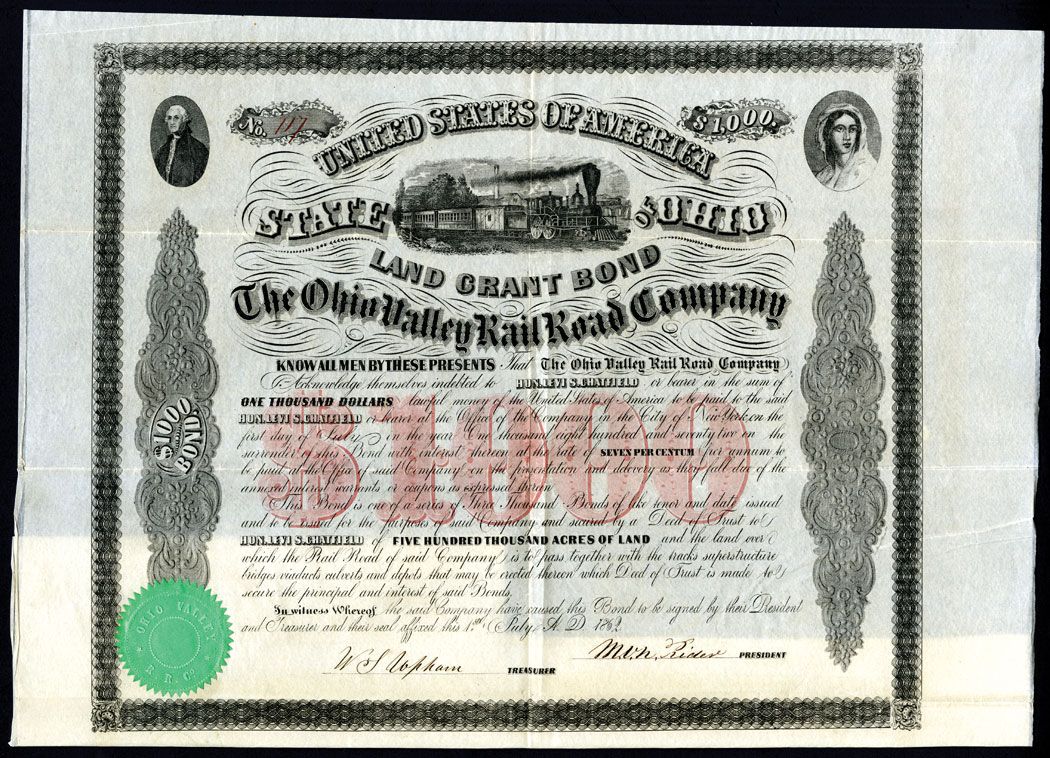 No. 117
$1,000.
UNITED STATES OF AMERICA
STATE OF OHIO
LAND GRANT BOND
The Ohio Valley Rail Road Company
KNOW ALL MEN BY THESE PRESENTS That The Ohio Valley Rail Road Company
Acknowledge themselves indebted to HON. LEVI S. CHATFIELD or bearer in the sum of
ONE THOUSAND DOLLARS lawful money of the United States of America to be paid to the said
HON. LEVI S. CHATFIELD or bearer at the Office of the Company in the City of New York on the
first day of July in the year One thousand eight hundred and seventy two on the
surrender of this Bond with interest thereon at the rate of SEVEN PER CENTUM per annum to
be paid at the Office of said Company on the presentation and delivery as they fall day of the
annexed interest warrants or coupons as expressed therein
This Bond is one of a series of Three Thousand Bonds of like tenor and date issued
and to be issued for the purposes of said Company and secured by a Deed of Trust to
HON. LEVI S. CHATFIELD of FIVE HUNDRED THOUSAND ACRES OF LAND and the land over
which the Rail Road of said Company is to pass together with the tracks superstructure
bridges viaducts culverts and depots that may be erected thereon which Deed of Trust is made to
secure the principal and interest of said Bonds.
In witness Whereof the said Company have caused this Bond to be signed by their President
and Treasurer and their seal affixed this 1st July A. D. 1862
$1000
$1000
BOND
OHIO VALLEY
R. R. Co.
W S Topham TREASURER
M. V. N. Rider PRESIDENT